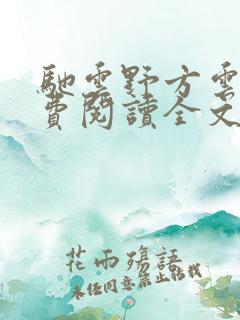 馳雲野方雲
費閱讀全文
花雨殤語
未经同意禁止转载